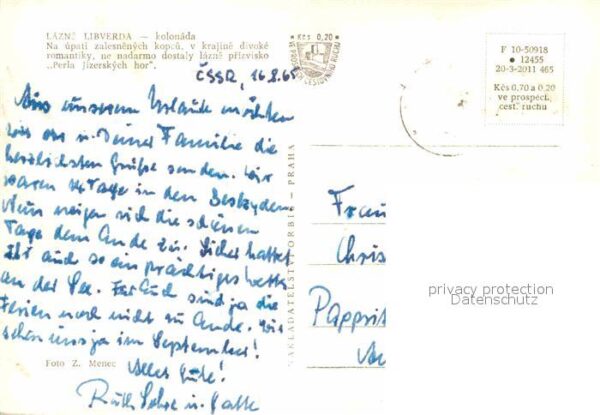 LÁZNĚ LIBVERDA — kolonáda
Na úpatí zalesněných kopců, v krajině divoké
romantiky, ne nadarmo dostaly lázně přízvisko
„Perla Jizerských hor".
Kčs 0,20
F 10-50918
• 12455
20-3-2011 465
Kčs 0,70 a 0,20
ve prospěch
cest. ruchu
ČSSR, 16.8.65
Aus unserem Urlaub möchten
wir Dir u. Deiner Familie die
herzlichsten Grüße senden. Wir
waren 14 Tage in den Beskyden.
Nun neigen sich die schönen
Tage dem Ende zu. Sicher hattet
Ihr auch so ein prächtiges
an der See. Für Euch sind ja die
Ferien noch nicht zu Ende. Wir
sehen uns ja im September!
Alles Gute!
Ruth u. Gatte
Foto Z. Menec
NAKLADATELSTVÍ ORBIS — PRAHA
Frau
Chris
privacy protection
Datenschutz